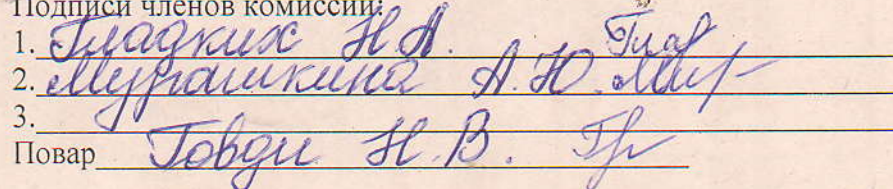 Подписи членов комиссии:
1. Гладких Н.А.
2. Мурашкина А.Ю.
3.
Повар Говди Н.В.